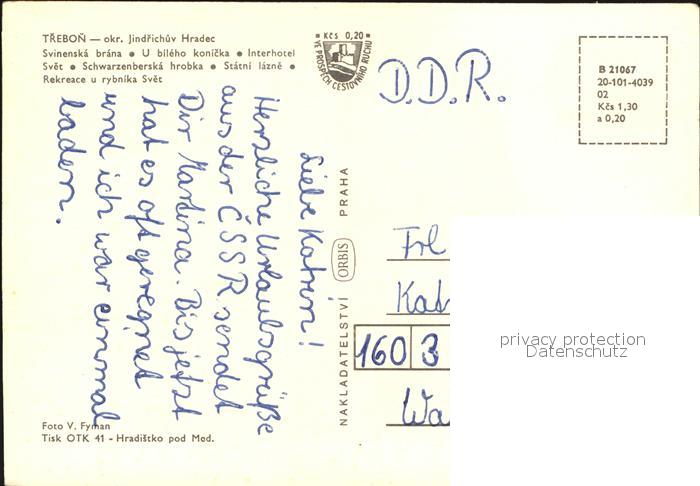 TŘEBOŇ — okr. Jindřichův Hradec
Svinenská brána • U bílého koníčka • Interhotel
Svět • Schwarzenberská hrobka • Státní lázně •
Rekreace u rybníka Svět
Kčs 0,20
VE PROSPĚCH CESTOVNÍHO RUCHU
D.D.R.
B 21067
20-101-4039
02
Kčs 1,30
a 0,20
Liebe Katrin!
Herzliche Urlaubsgrüße
aus der ČSSR sendet
Dir Martina. Bis jetzt
hat es oft geregnet
und ich war einmal
baden.
NAKLADATELSTVÍ ORBIS PRAHA
Frl
Kat
160 3
Wa
privacy protection
Datenschutz
Foto V. Fyman
Tisk OTK 41 - Hradištko pod Med.